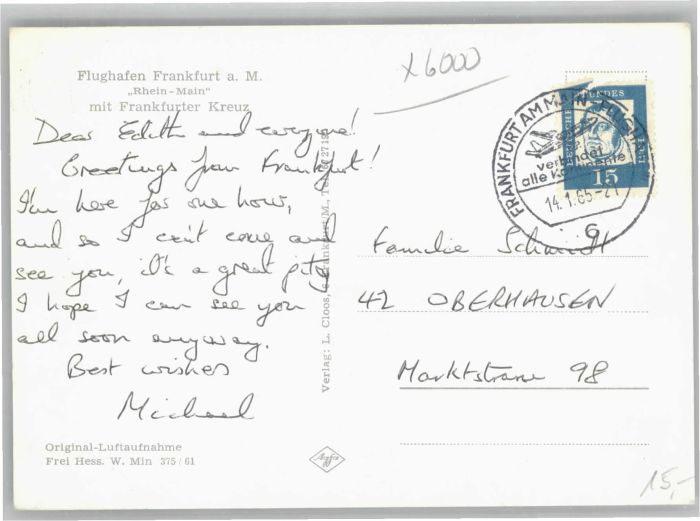 x6000
Flughafen Frankfurt a. M.
„Rhein-Main"
mit Frankfurter Kreuz
Dear Edith and everyone!
Greetings from Frankfurt!
I'm here for one hour,
and so I can't come and
see you, it's a great pity
I hope I can see you
all soon anyway.
Best wishes
Michael
Original-Luftaufnahme
Frei Hess. W. Min 375/61
Verlag: L. Cloos,
Agfa
FRANKFURT AM MAIN FLUGH
verbindet
alle Kontinente
14.1.65-21
G
15
Familie Schmidt
42 OBERHAUSEN
Marktstrasse 98
15,-